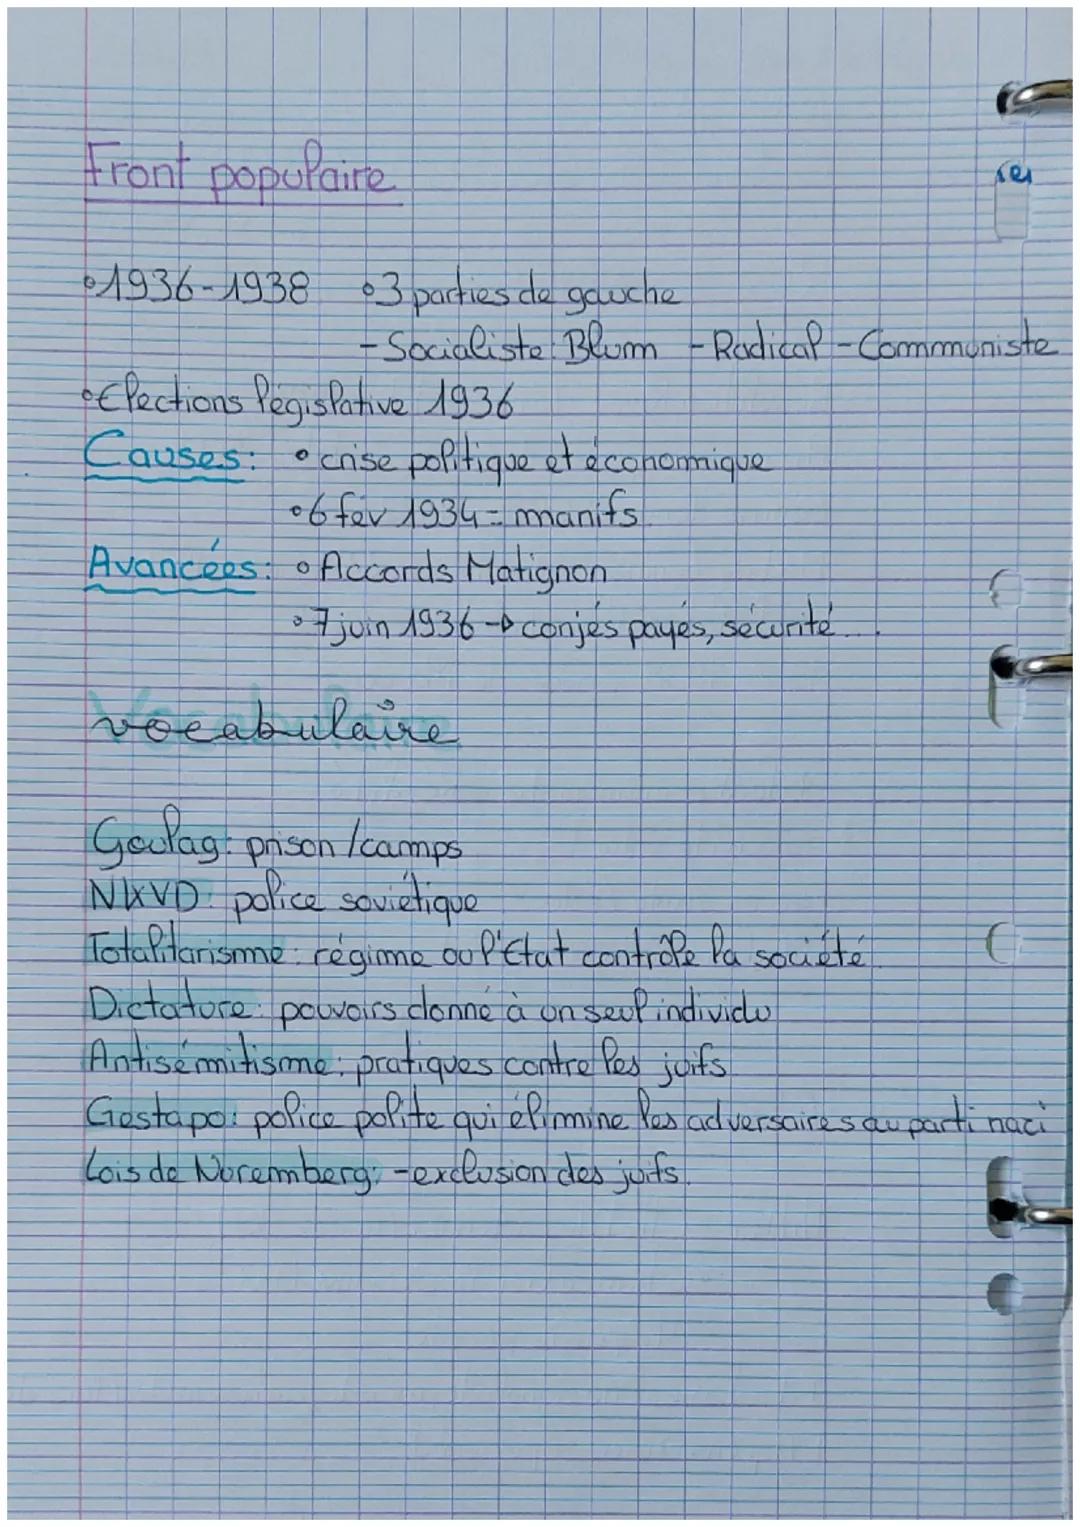 Front populaire
°1936-1938 °3 parties de gauche
-Socialiste: Blum -Radical -Communiste
°Elections législative 1936
Causes: °crise politique et économique
°6 fév 1934 = manifs
Avancées: °Accords Matignon
°7 juin 1936 → conjés payés, sécurité...
vocabulaire
Goulag: prison/camps
NKVD: police soviétique
Totalitarisme: régime ou l'Etat contrôle la société
Dictature: pouvoirs donné à un seul individu
Antisémitisme: pratiques contre les juifs
Gestapo: police polite qui élimine les adversaires au parti naci
Lois de Nuremberg: -exclusion des juifs.